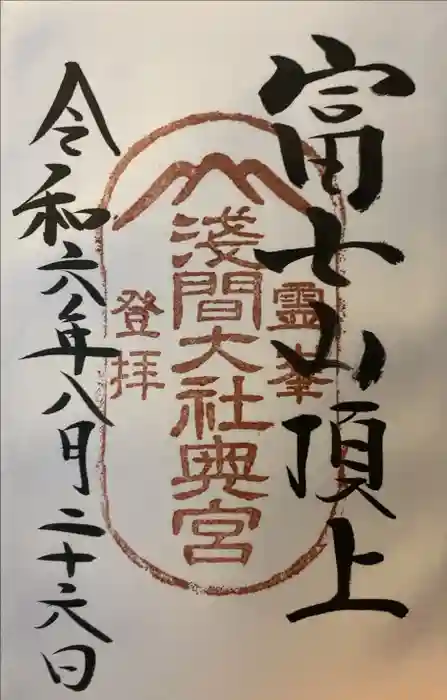 富士山頂上
霊峯
浅間大社奥宮
登拝
令和六年八月二十六日